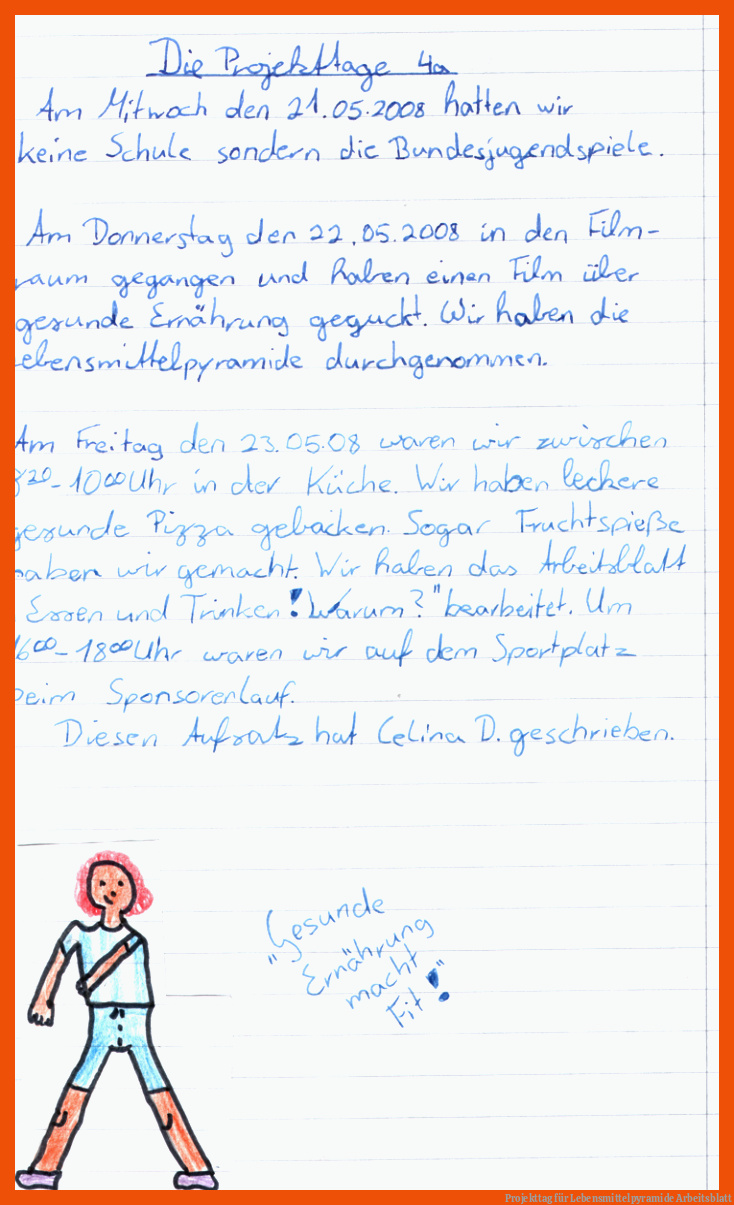 Die Projekttage 4a
Am Mitwoch den 21.05.2008 hatten wir
keine Schule sondern die Bundesjugendspiele.
Am Donnerstag den 22.05.2008 in den Film-
raum gegangen und haben einen Film über
gesunde Ernährung geguckt. Wir haben die
ebensmittelpyramide durchgenommen.
Am Freitag den 23.05.08 waren wir zwischen
820-1000 Uhr in der Küche. Wir haben leckere
gesunde Pizza gebacken. Sogar Fruchtspieße
haben wir gemacht. Wir haben das Arbeitsblatt
Essen und Trinken! Warum?" bearbeitet. Um
1600-1800 Uhr waren wir auf dem Sportplatz
beim Sponsorenlauf.
Diesen Aufsatz hat Celina D. geschrieben.
"Gesunde
Ernährung
macht
Fit!"
Projekttag für Lebensmittelpyramide Arbeitsblatt